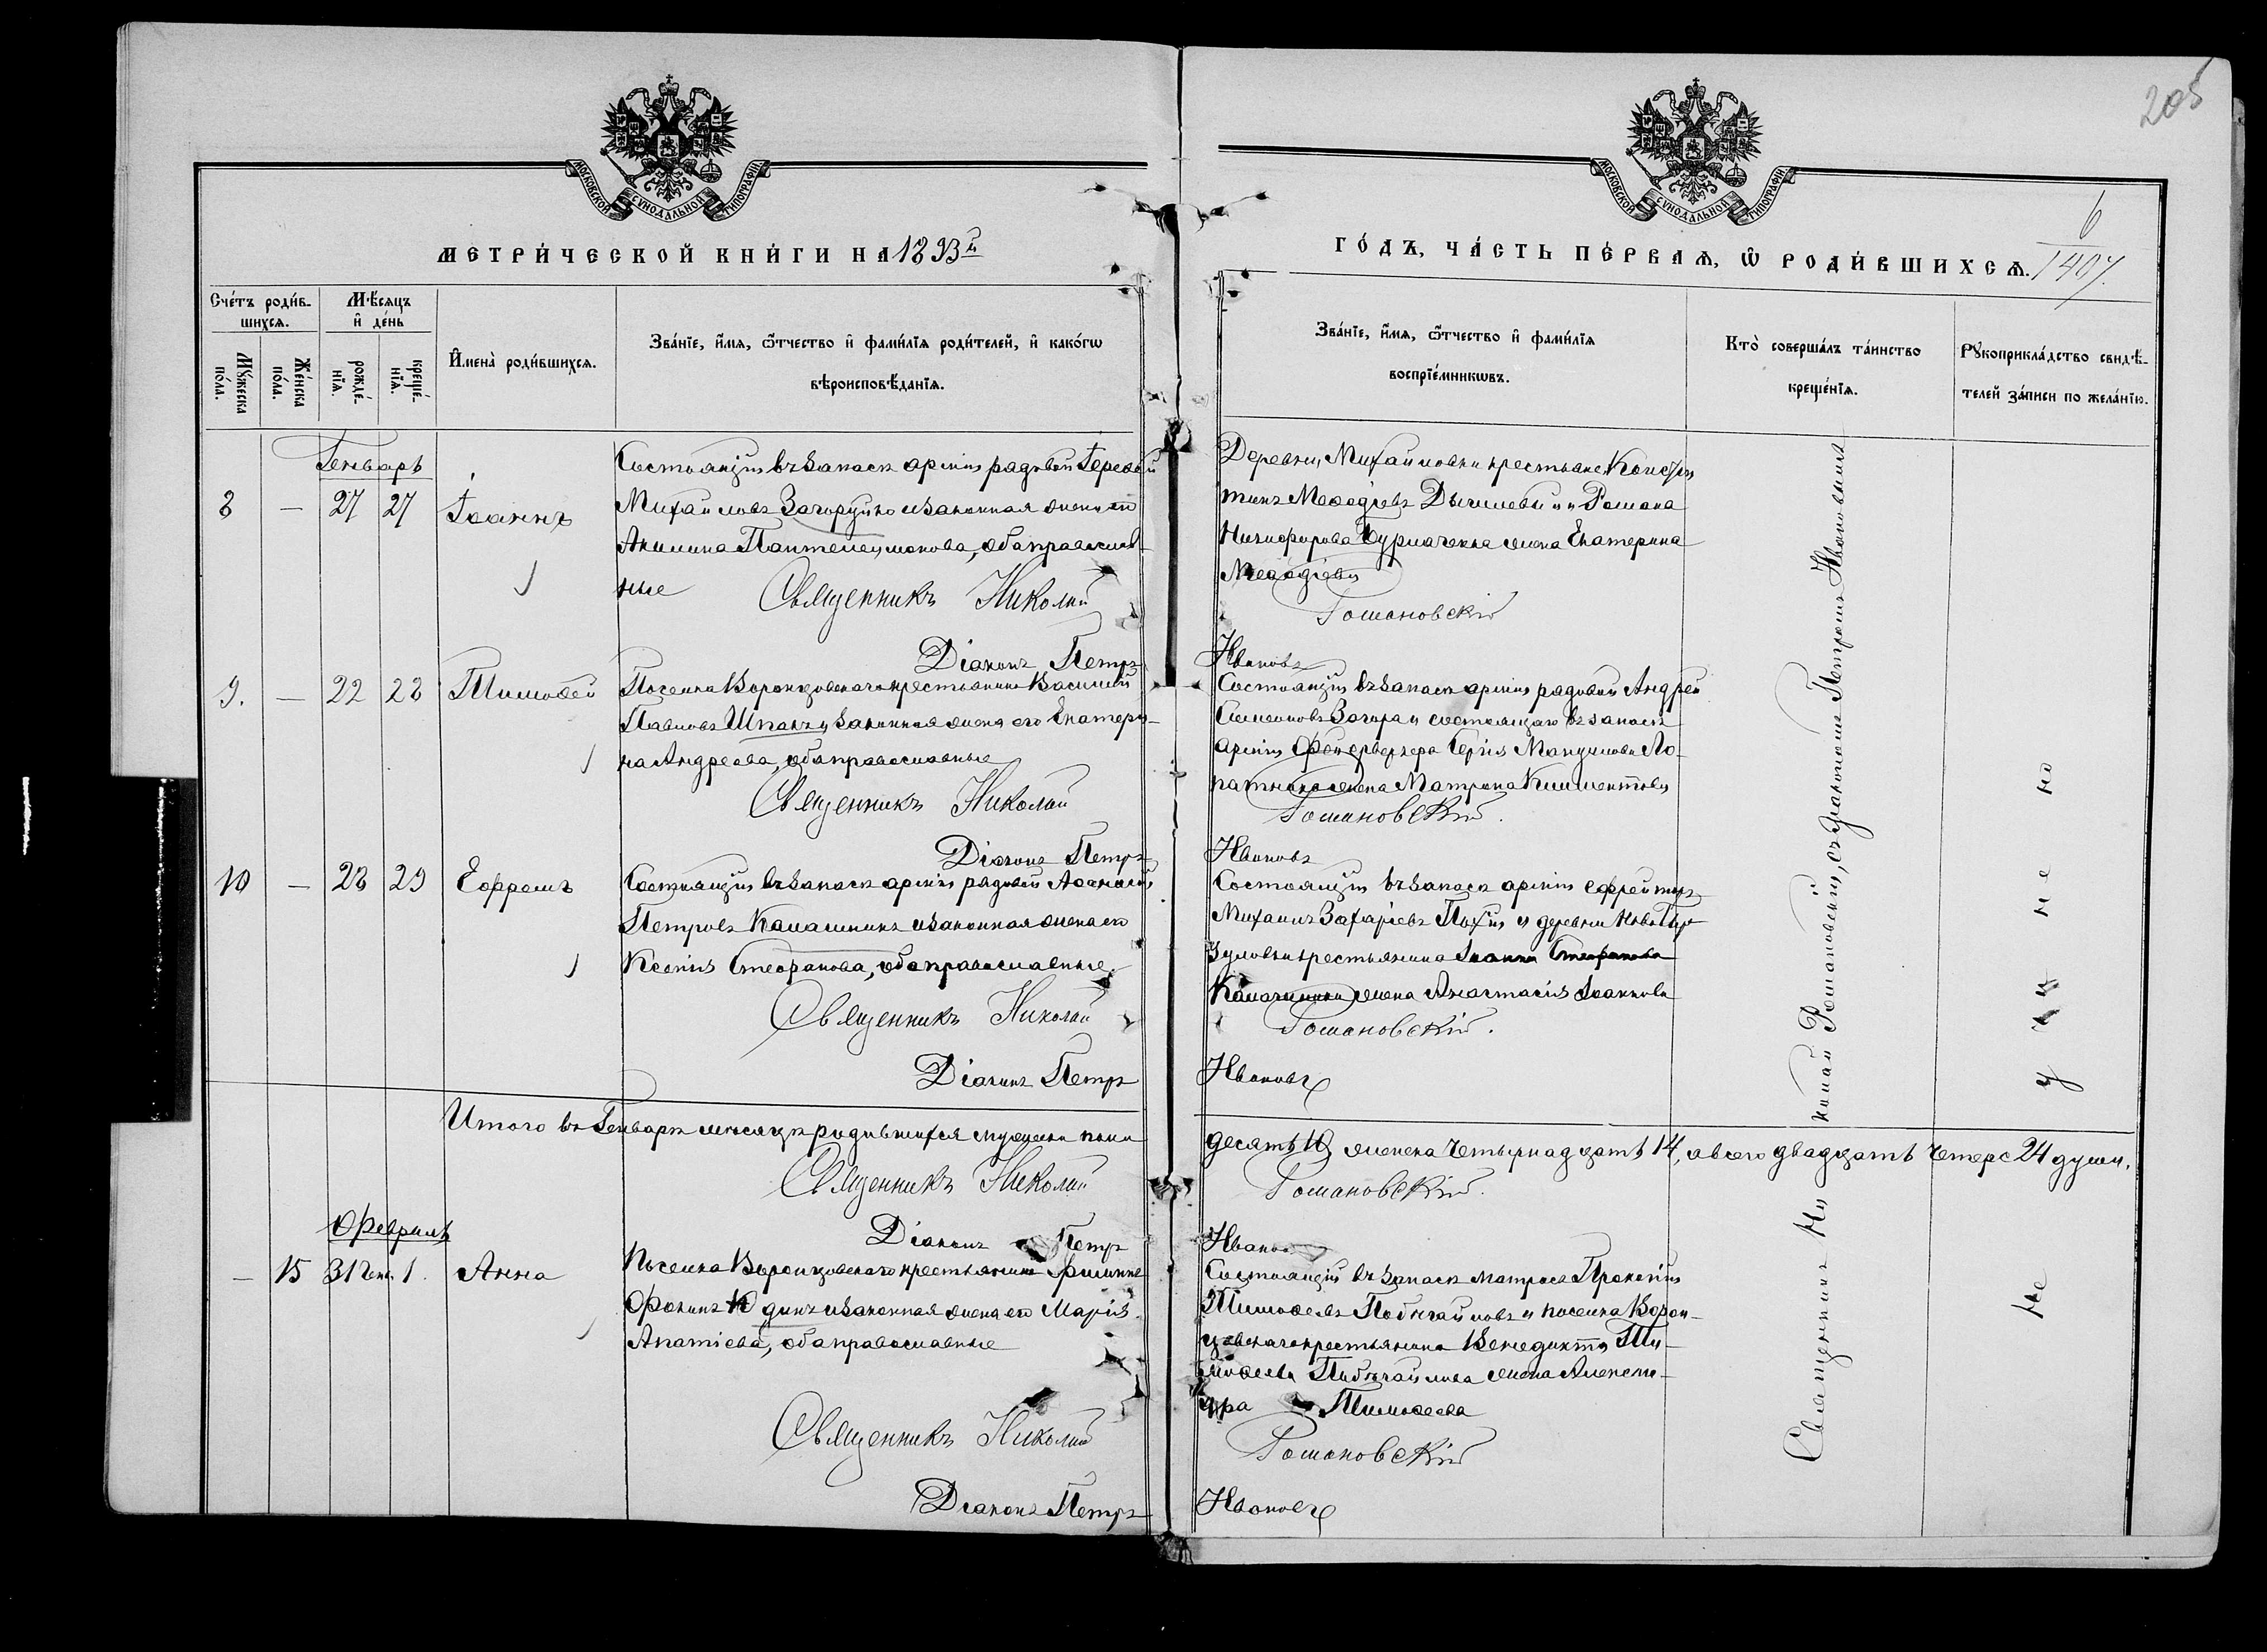 205
МОСКОВСКОЙ СѴНОДАЛЬНОЙ ТИПОГРАФІИ
МОСКОВСКОЙ СѴНОДАЛЬНОЙ ТИПОГРАФІИ
МЕТРИ́ЧЕСКОЙ КНИ́ГИ НА 1893й
ГО́ДЪ, ЧА́СТЬ ПЕ́РВАѦ, Ѡ РОДИ́ВШИХСѦ.
6
1407.
Сче́тъ роди́в-
шихсѧ.
Мѣ́сѧцъ
и҆ де́нь
Мꙋ́жеска
по́ла.
Же́нска
по́ла.
рожде́-
нїѧ.
креще́-
нїѧ.
И҆мена̀ роди́вшихсѧ.
Зва́нїе, и҆́мѧ, ѻ҆́тчество и҆ фами́лїѧ роди́телей, и҆ како́гѡ
вѣроисповѣ́данїѧ.
Зва́нїе, и҆́мѧ, ѻ҆́тчество и҆ фами́лїѧ
воспрїе́мникѡвъ.
Кто̀ соверша́лъ та́инство
креще́нїѧ.
Рꙋкоприкла́дство свидѣ́-
телей за́писи по жела́нїю.
Генварь
Состоящій въ запасѣ арміи рядовой
8 — 27 27 Іоаннъ
Михайловъ Загоруйко и законная жена его
Акилина Пантелеимонова, оба православ-
ные
Священникъ Николай
Діаконъ Петръ
Деревни Михайловки крестьяне Констан
тинъ Меѳодіевъ и Романа
Никифорова Бурлаченка жена Екатерина
Меѳодіева
Романовскій
Ивановъ
9. — 22 28 Тимоѳей
Поселка Воронцовскаго крестьянинъ Василій
Павловъ Шпакъ и законная жена его Екатери-
на Андреева, оба православные
Священникъ Николай
Діаконъ Петръ
Состоящій въ запасѣ арміи рядовой Андрей
Симеоновъ Загора и состоящаго въ запасѣ
арміи фейерверкера Сергія Мануилова Ло-
патника жена Матрона Климентова
Романовскій.
Ивановъ
10 — 28 29 Ефремъ
Состоящій въ запасѣ арміи рядовой Аѳанасій
Петровъ Калашникъ и законная жена его
Ксенія Стефанова, оба православные.
Священникъ Николай
Діаконъ Петръ
Состоящій въ запасѣ арміи ефрейторъ
Михаилъ Захаріевъ и деревни
крестьянина Іоанна Стефанова
Калашника жена Анастасія Іоаннова
Романовскій.
Ивановъ
Итого въ Генварѣ мѣсяцѣ родившихся мужеска пола
десять 10, женска четырнадцать 14, а всего двадцать четыре 24 души.
Священникъ Николай
Романовскій.
Діаконъ Петръ
Ивановъ
Февраль
— 15 31 Ген. 1. Анна
Поселка Воронцовскаго крестьянинъ Филиппъ
Фокинъ Юдинъ и законная жена его Марія
Ипатіева, оба православные
Священникъ Николай
Діаконъ Петръ
Состоящій въ запасѣ матросъ Прокопій
Тимоѳеевъ и поселка Ворон-
цовскаго крестьянина Венедикта Ти-
моѳеева жена Алексан-
дра Тимоѳеева
Романовскій
Ивановъ
Священникъ Ни
колай Романовскій, съ діакономъ Петромъ Ивановымъ
Не
но